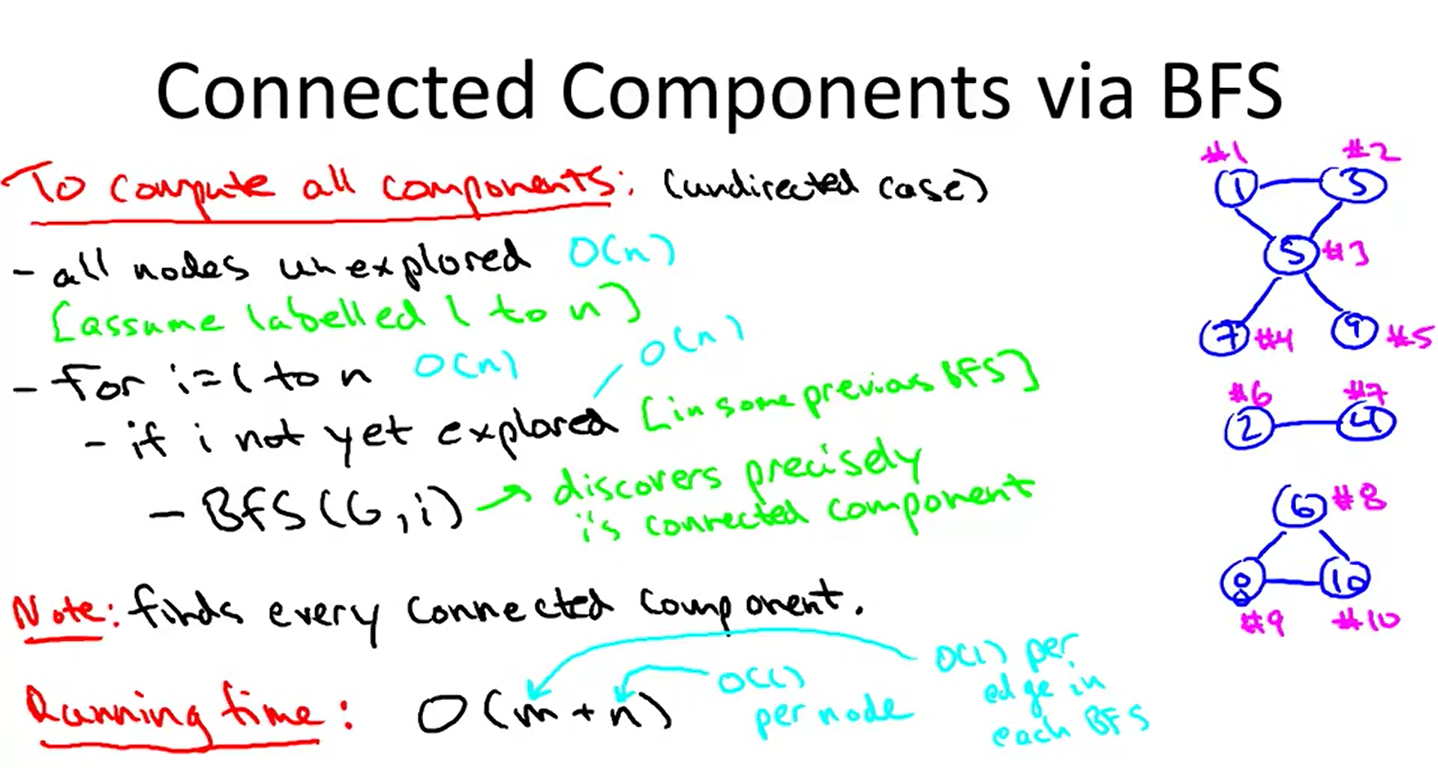 Connected Components via BFS
To compute all components: (undirected case)
- all nodes unexplored O(n)
[assume labelled 1 to n]
- for i=1 to n O(n)
O(n)
- if i not yet explored [in some previous BFS]
- BFS(G,i) → discovers precisely
i's connected component
Note: finds every connected component.
Running time: O(m+n)
O(1)
per node
O(1) per
edge in
each BFS
#1 #2
1 3
5 #3
7 #4 9 #5
#6 #7
2 4
6 #8
8 10
#9 #10